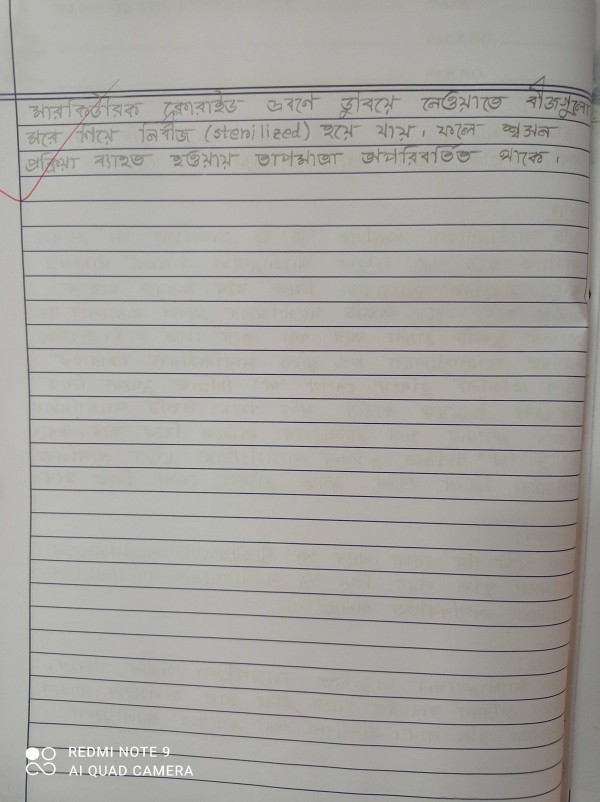 মারকিউরিক ক্লোরাইড দ্রবণে ডুবিয়ে নেওয়াতে বীজগুলো
মরে গিয়ে নির্বীজ (sterilized) হয়ে যায়। ফলে শ্বসন
প্রক্রিয়া ব্যাহত হওয়ায় তাপমাত্রা অপরিবর্তিত থাকে।
REDMI NOTE 9
AI QUAD CAMERA